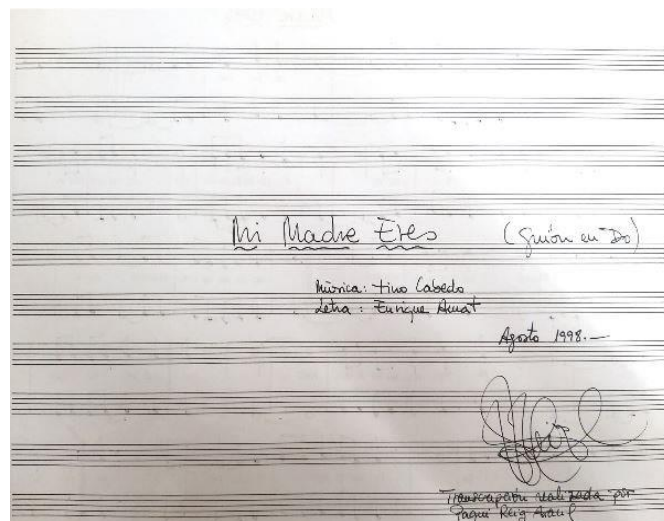 Mi Madre Eres (Guión en Do)
Música: Tino Cabedo
Letra: Enrique Amat
Agosto 1998.-
Transcripción realizada por
Paqui Reig